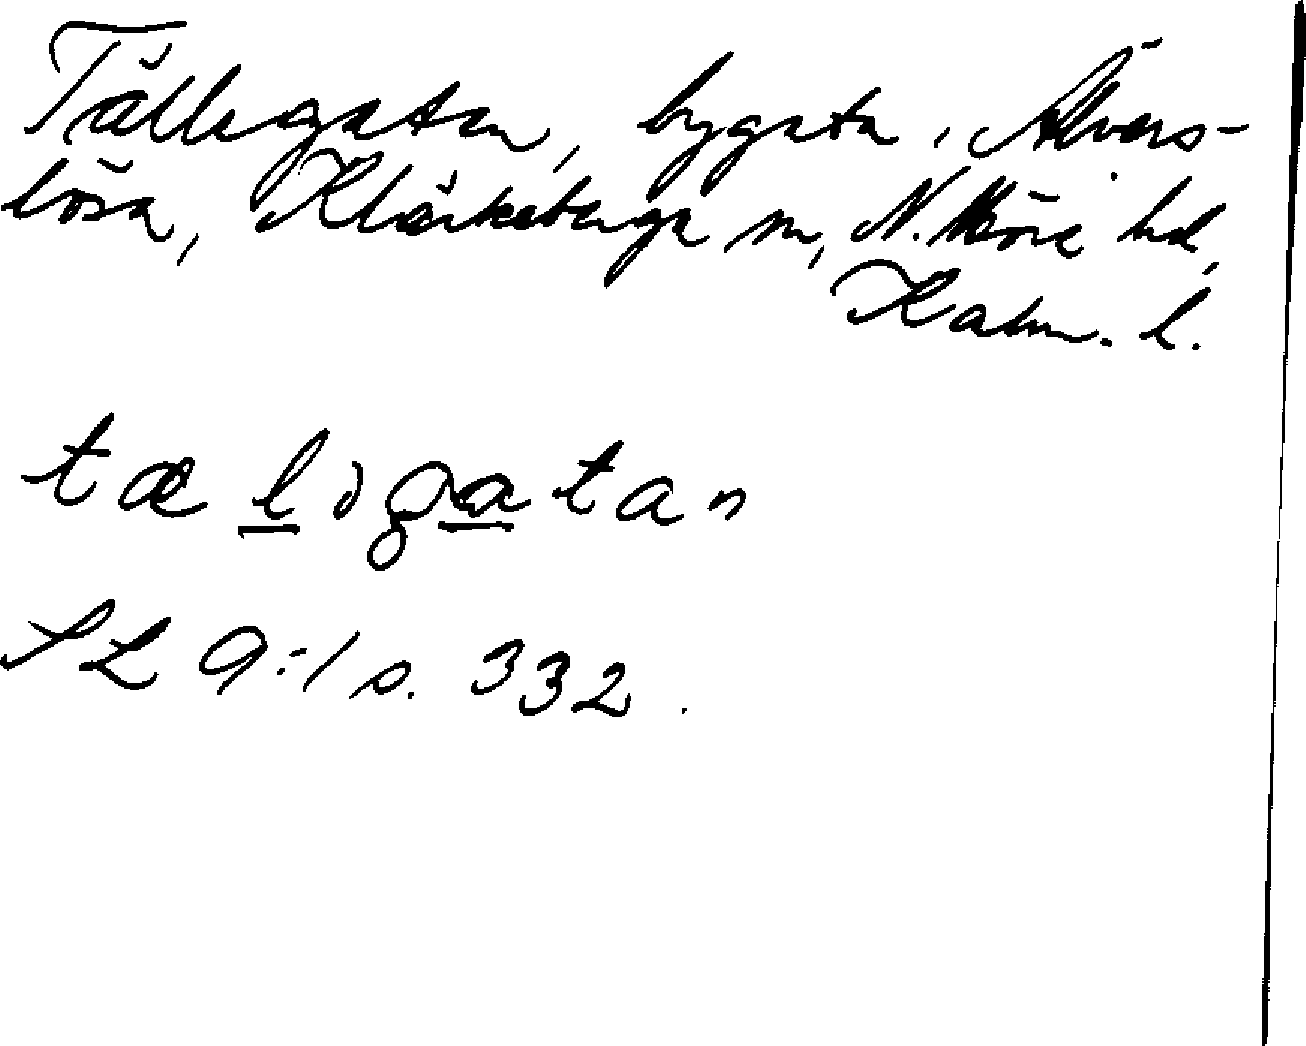 Tällegatan, bygata i Älvers-
lösa, Kläckeberga sn, N. Möre hd,
Kalm. l.
tæləgatan
SL 9:1 s. 332.